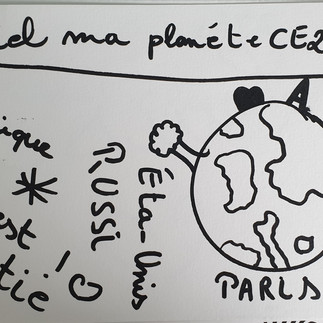 ma planéte CE2
ique
est
tié
RUSSI
Éta-Unis
PARIS